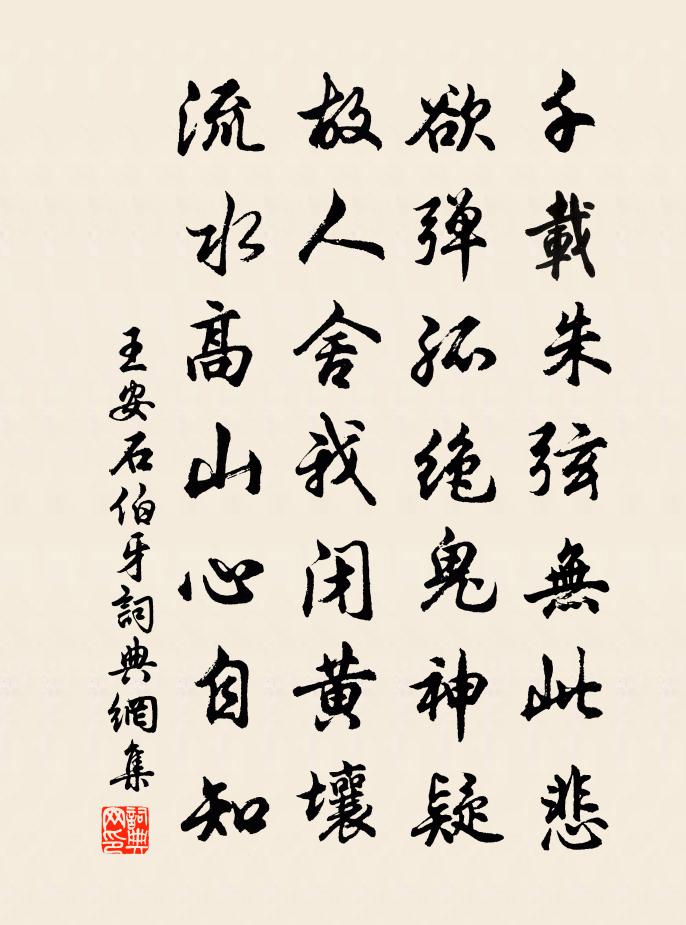 千載朱弦無此悲
欲弹孤绝鬼神疑
故人舍我闭黄壤
流水高山心自知
王安石伯牙詞典網集
詞典网印